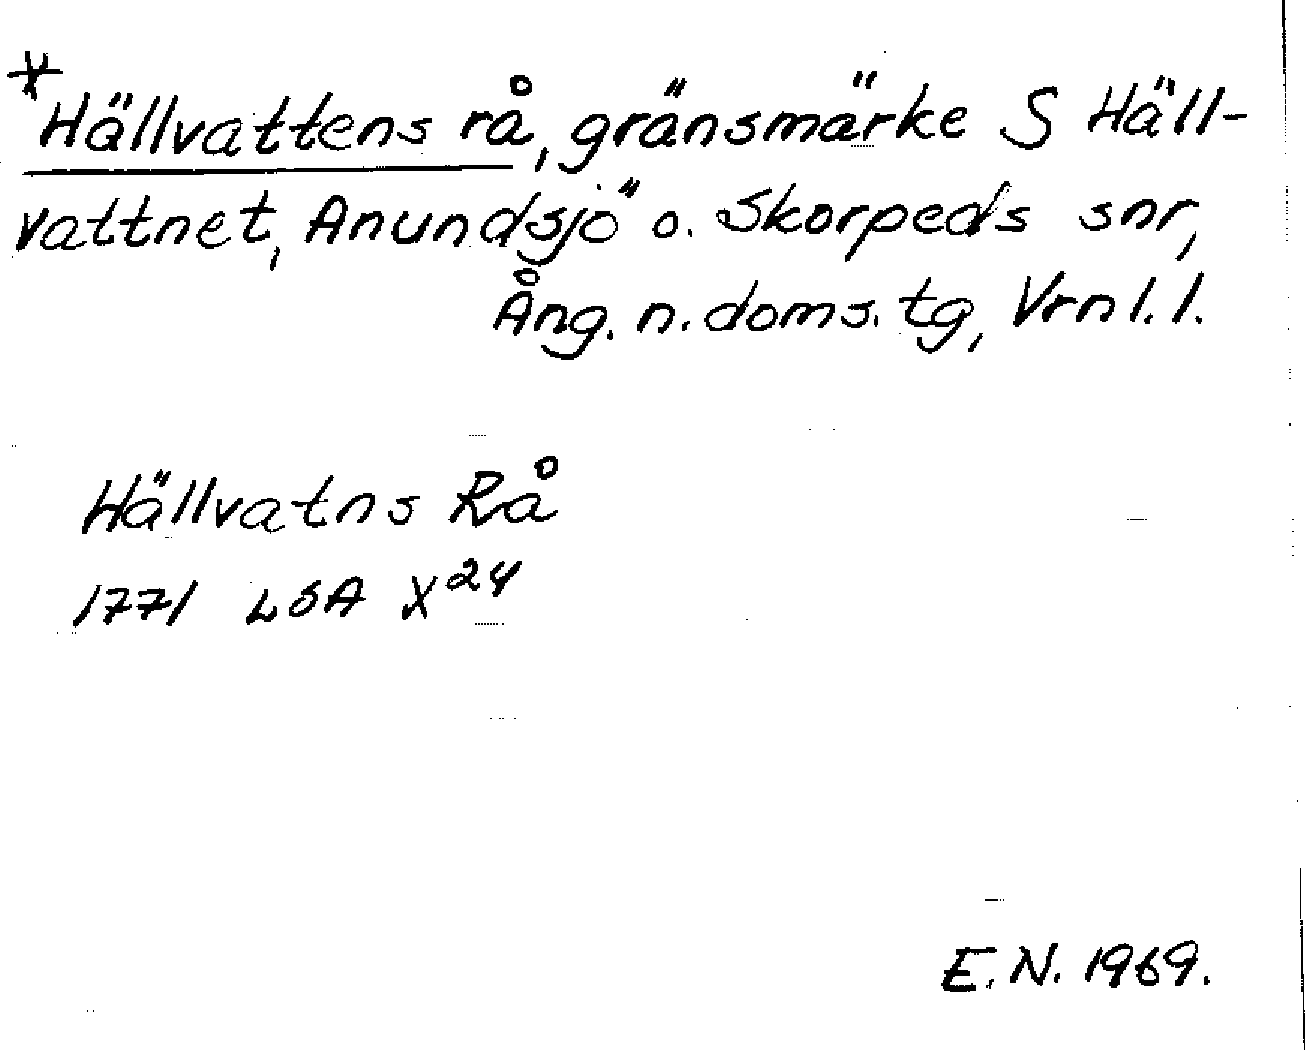 *Hällvattens rå, gränsmärke S Häll-
vattnet, Anundsjö o. Skorpeds snr,
Ång. n. doms. tg, Vrnl. l.
Hällvatns Rå
1771 LSA X²⁴
E. N. 1969.